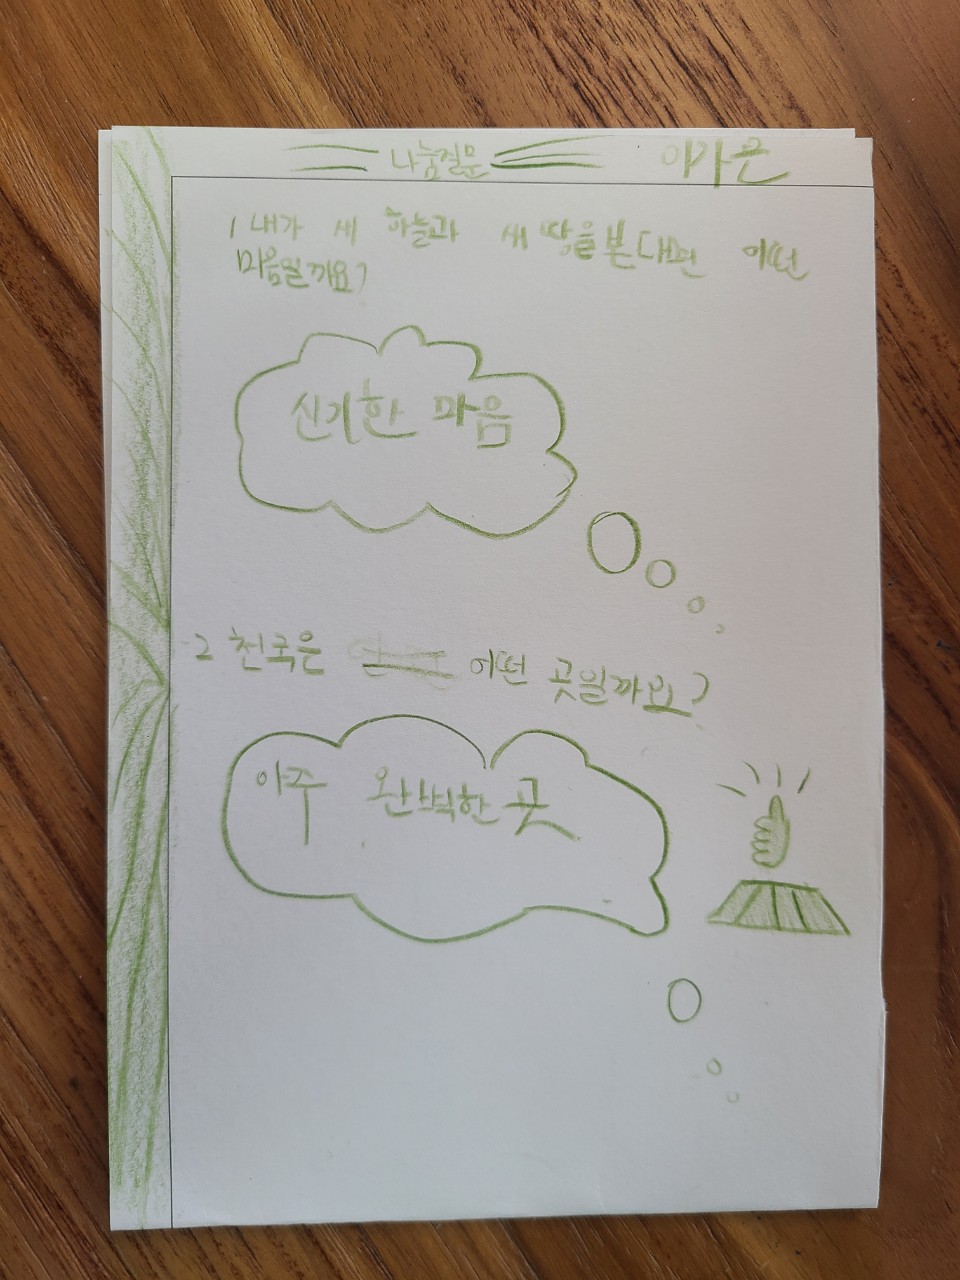 나눔질문 이가은
1 내가 새 하늘과 새 땅을 본다면 어떤
마음일까요?
신기한 마음
2 천국은 어떤 곳일까요?
아주 완벽한 곳